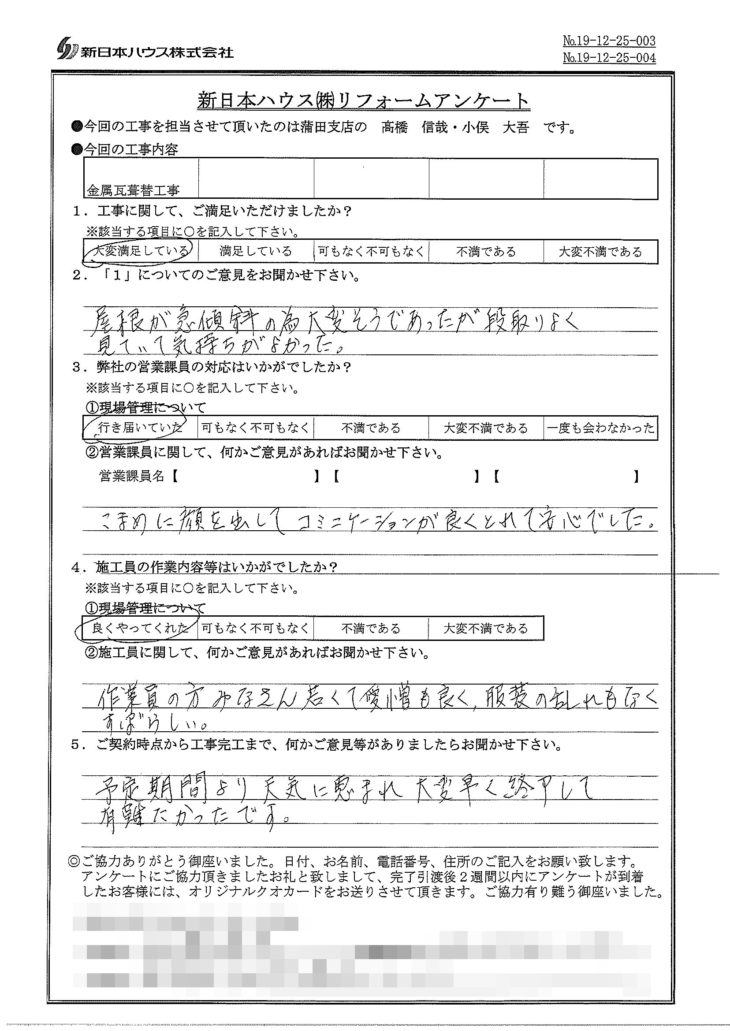 新日本ハウス株式会社
№19-12-25-003
№19-12-25-004
新日本ハウス㈱リフォームアンケート
●今回の工事を担当させて頂いたのは蒲田支店の 高橋 信哉・小俣 大吾 です。
●今回の工事内容
金属瓦葺替工事
1．工事に関して、ご満足いただけましたか？
※該当する項目に○を記入して下さい。
大変満足している 満足している 可もなく不可もなく 不満である 大変不満である
2．「1」についてのご意見をお聞かせ下さい。
屋根が急傾斜の為大変そうであったが段取りよく
見ていて気持ちがよかった。
3．弊社の営業課員の対応はいかがでしたか？
※該当する項目に○を記入して下さい。
①現場管理について
行き届いていた 可もなく不可もなく 不満である 大変不満である 一度も会わなかった
②営業課員に関して、何かご意見があればお聞かせ下さい。
営業課員名【 】【 】【 】
こまめに顔を出してコミニケーションが良くとれて安心でした。
4．施工員の作業内容等はいかがでしたか？
※該当する項目に○を記入して下さい。
①現場管理について
良くやってくれた 可もなく不可もなく 不満である 大変不満である
②施工員に関して、何かご意見があればお聞かせ下さい。
作業員の方みなさん若くて愛憎も良く、服装の乱れもなく
すばらしい。
5．ご契約時点から工事完工まで、何かご意見等がありましたらお聞かせ下さい。
予定期間より天気に恵まれ大変早く終了して
有難たかったです。
◎ご協力ありがとう御座いました。日付、お名前、電話番号、住所のご記入をお願い致します。
アンケートにご協力頂きましたお礼と致しまして、完了引渡後２週間以内にアンケートが到着
したお客様には、オリジナルクオカードをお送りさせて頂きます。ご協力有り難う御座いました。